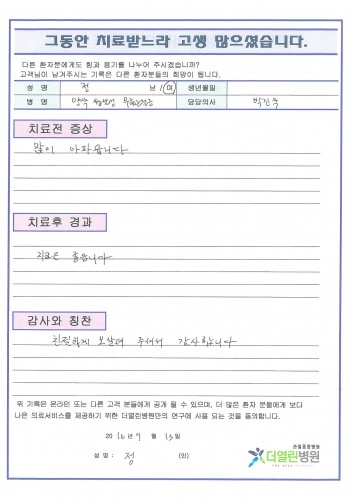 그동안 치료받느라 고생 많으셨습니다.
다른 환자분에게도 힘과 용기를 나누어 주시겠습니까?
고객님이 남겨주시는 기록은 다른 환자분들의 희망이 됩니다.
성 명 정 남 / 여 생년월일
병 명 양측 담당의사 박진수
치료전 증상
많이 아파웁니다
치료후 경과
지금은 좋습니다
감사와 칭찬
친절하게 보살펴 주셔서 감사합니다
위 기록은 온라인 또는 다른 고객 분들에게 공개 될 수 있으며, 더 많은 환자 분들에게 보다
나은 의료서비스를 제공하기 위한 더열린병원만의 연구에 사용 되는 것을 동의합니다.
2016년 9 월 13일
성 명 : 정 (인)
관절종합병원
더열린병원